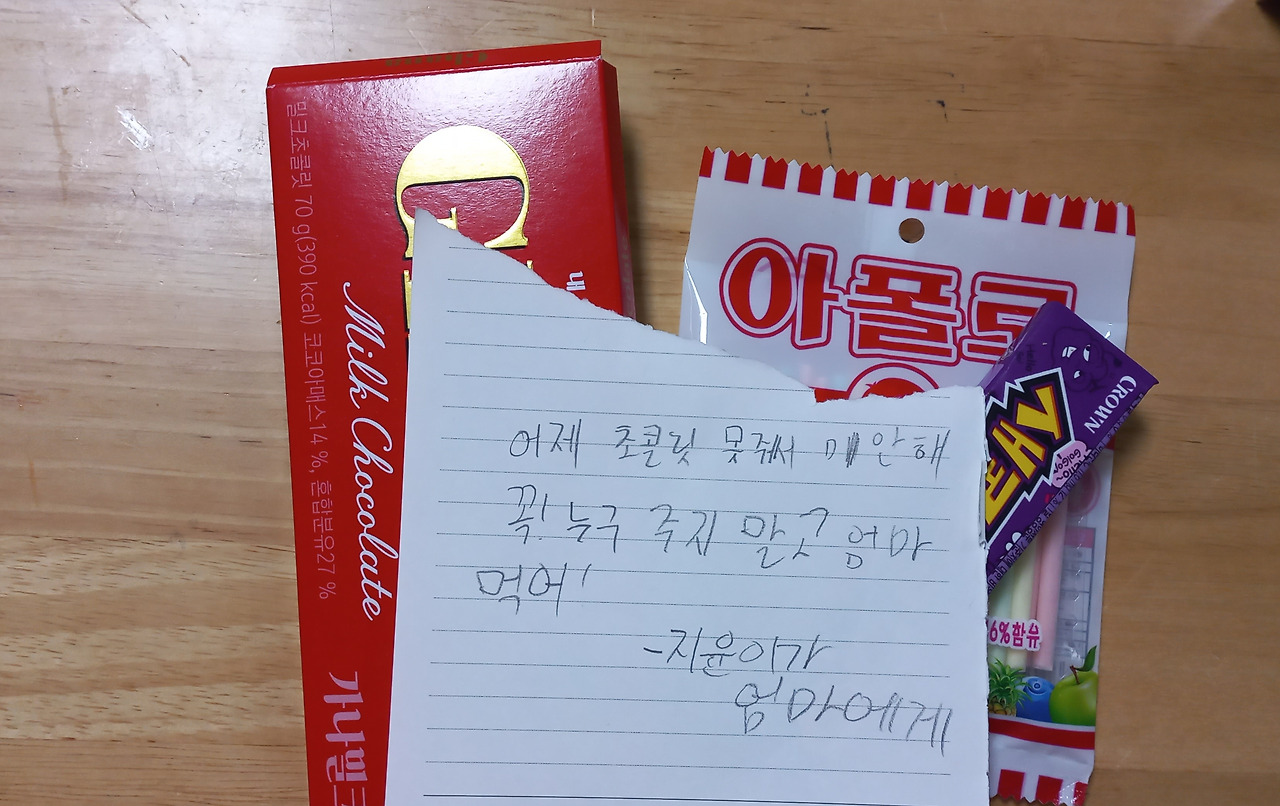 밀크초콜릿 70 g(390 kcal) 코코아매스14 %, 혼합분유27 %
Milk Chocolate
가나밀크
내
아폴로
CROWN
6%함유
어제 초콜릿 못줘서 미안해
꼭! 누구 주지 말고 엄마
먹어!
-지윤이가
엄마에게